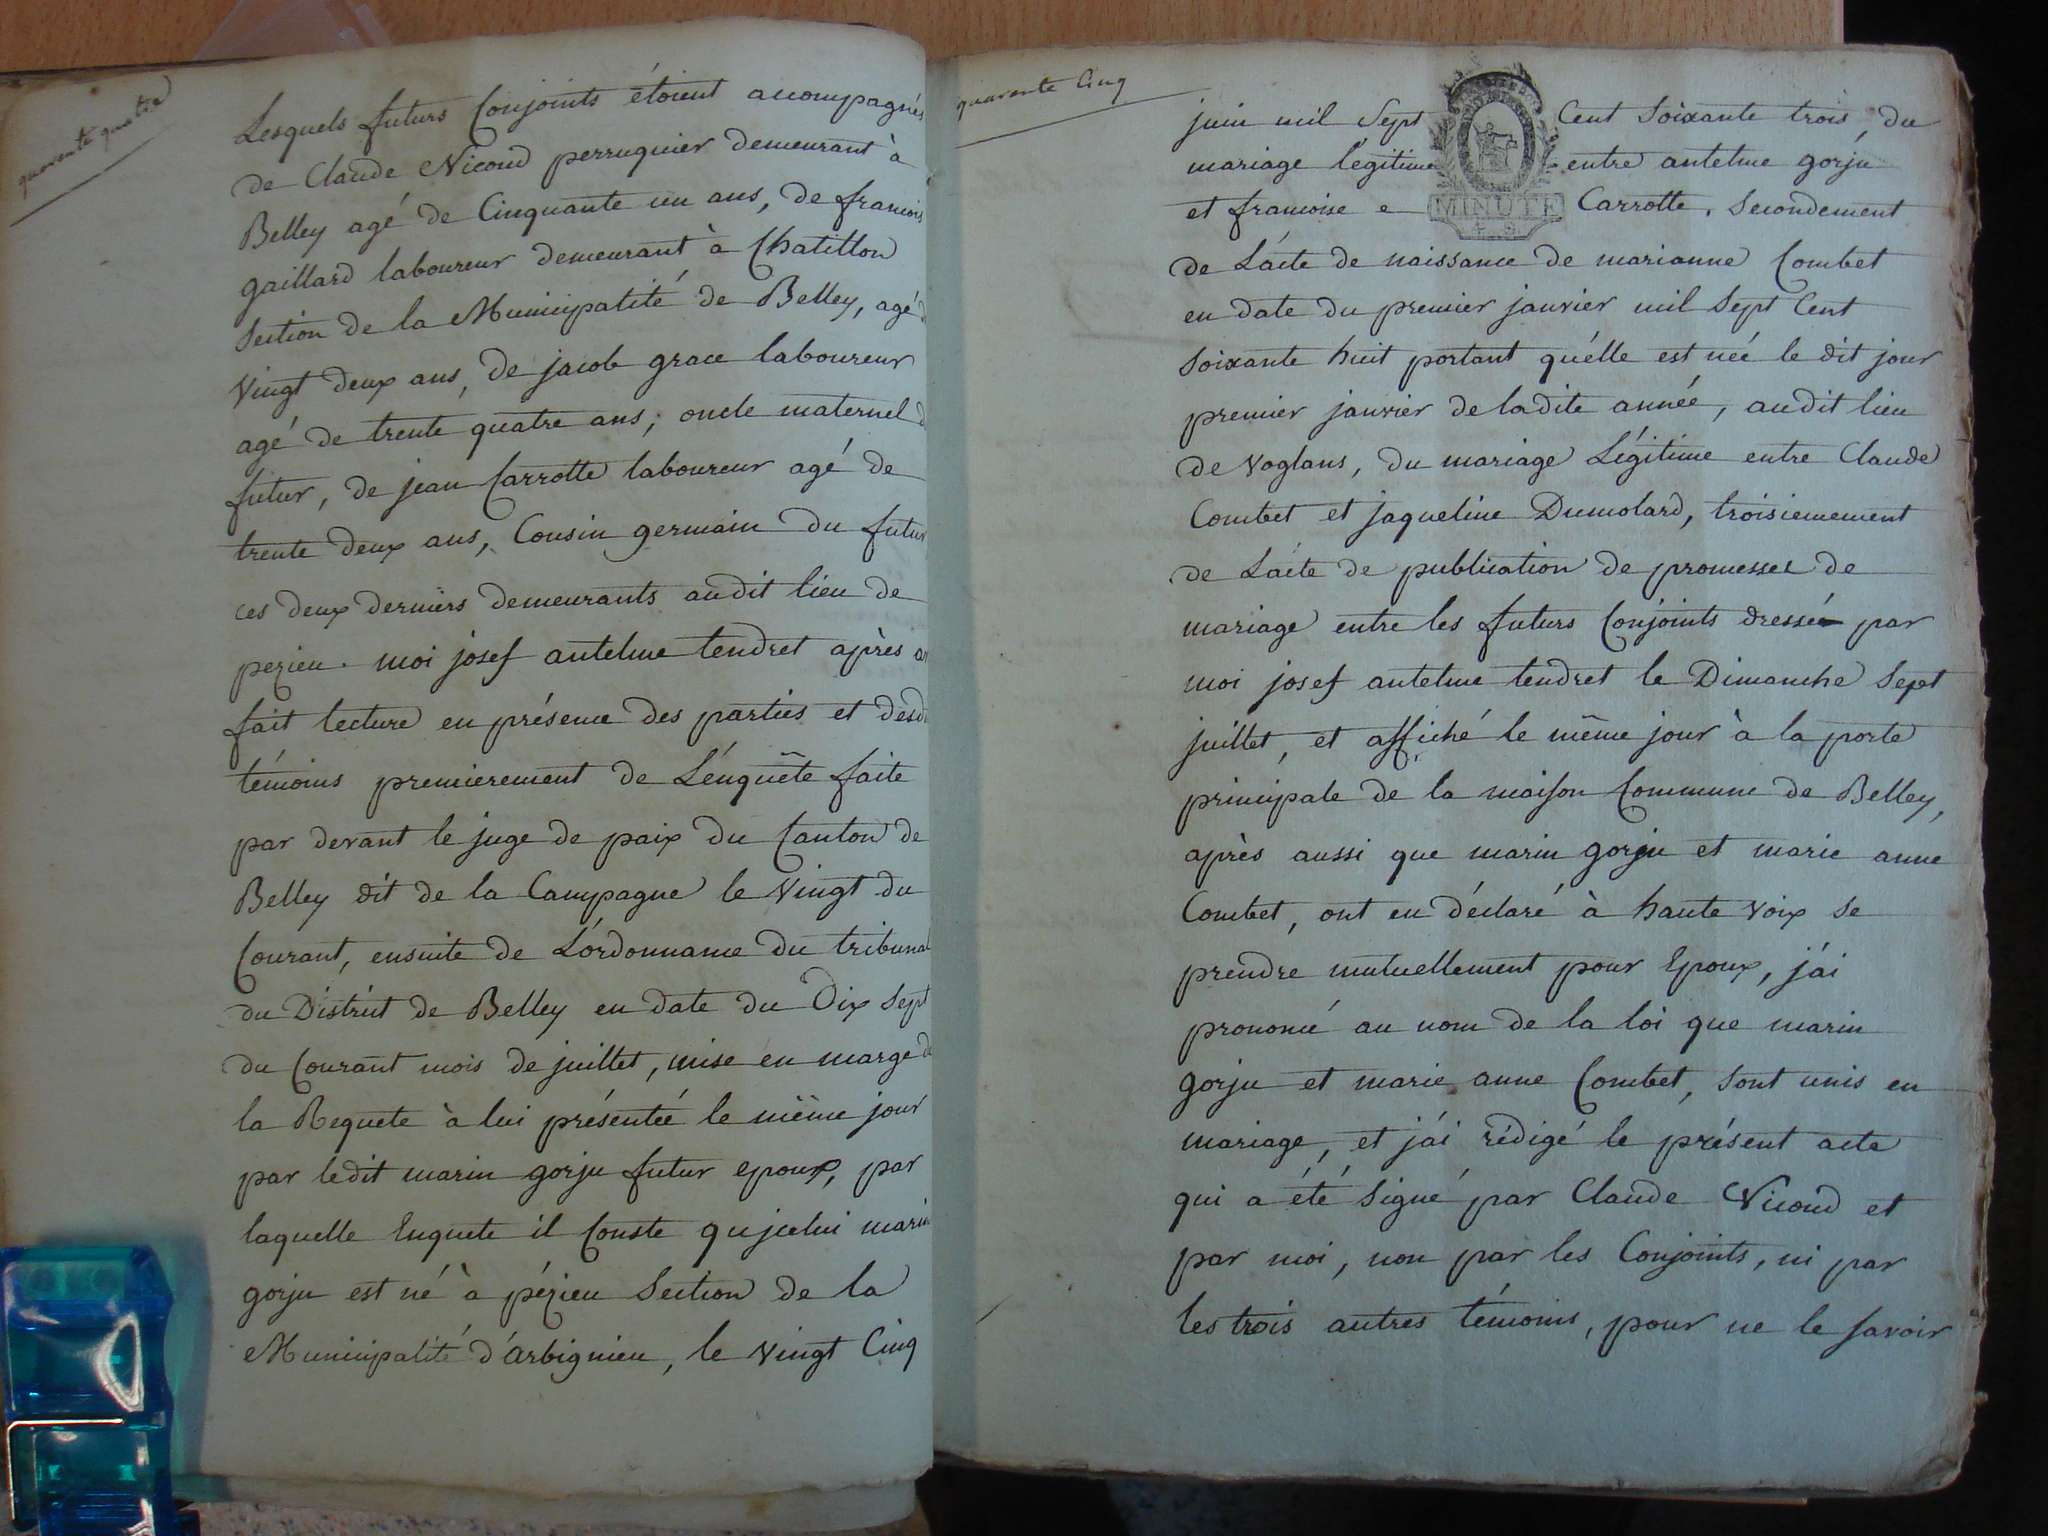 quarente quatre
Lesquels futurs Conjoints étoient accompagnés
de Claude Nicoud perruquier demeurant à
Belley agé de Cinquante un ans, de francois
gaillard laboureur demeurant à Chatillon
Section de la Municipalité de Belley, agé d
vingt deux ans, de jacob grace laboureur
agé de trente quatre ans, oncle maternel d
futur, de jean Carrotte laboureur agé de
trente deux ans, Cousin germain du futur
ces deux derniers demeurants audit lieu de
pezieu. moi josef antelme tendret après a
fait lecture en présence des parties et desd
témoins premierement de L'énquête faite
par devant le juge de paix du Canton de
Belley dit de la Campagne le vingt du
Courant, ensuite de L'órdonnance du tribunal
du District de Belley en date du Dix Sept
du Courant mois de juillet, mise en marge de
la Requete à lui présentéé le même jour
par ledit marin gorju futur epoux, par
laquelle Enquete il Conste qu'jcelui marin
gorju est né à pézieu Section de la
Municipalité d'árbignieu, le vingt Cinq
quarente Cinq
juin mil Sept Cent Soixante trois, du
mariage légitime entre antelme gorju
et francoise e MINUTE Carrotte. Secondement
de L'ácte de naissance de marianne Combet
en date du premier janvier mil Sept Cent
Soixante huit portant qu'élle est néé le dit jour
premier janvier de ladite annéé, audit lieu
de voglans, du mariage Légitime entre Claude
Combet et jaqueline Dumolard, troisiemement
de L'ácte de publication de promesses de
mariage entre les futurs Conjoints dressé par
moi josef antelme tendret le Dimanche Sept
juillet, et affiché le même jour à la porte
principale de la maison Commune de Belley,
après aussi que marin gorju et marie anne
Combet, ont eu déclaré à haute voix se
prendre mutuellement pour Epoux, j'ái
prononcé au nom de la loi que marin
gorju et marie anne Combet, sont unis en
mariage, et j'ái rédigé le présent acte
qui a été Signé par Claude Nicoud et
par moi, non par les Conjoints, ni par
les trois autres témoins, pour ne le savoir